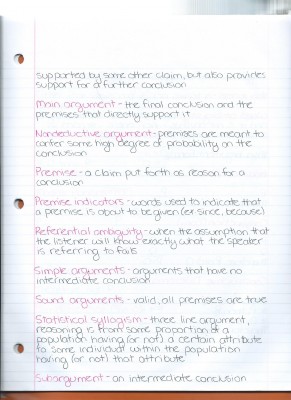 supported by some other claim, but also provides
support for a further conclusion
Main argument - the final conclusion and the
premises that directly support it
Nondeductive argument - premises are meant to
confer some high degree of probability on the
conclusion
Premise - a claim put forth as reason for a
conclusion
Premise indicators - words used to indicate that
a premise is about to be given (ex: since, because)
Referential ambiguity - when the assumption that
the listener will know exactly what the speaker
is referring to fails
Simple arguments - arguments that have no
intermediate conclusion
Sound arguments - valid, all premises are true
Statistical syllogism - three line argument,
reasoning is from some proportion of a
population having (or not) a certain attribute
to some individual within the population
having (or not) that attribute
Subargument - an intermediate conclusion